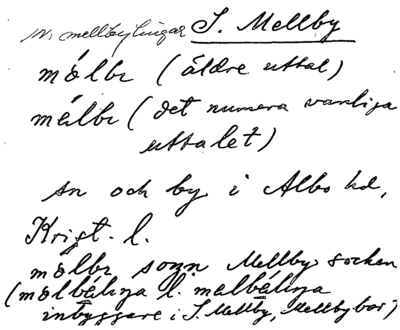 m. mellbylingar S. Mellby
mǿlbı (äldre uttal)
mélbı (det numera vanliga
uttalet)
sn och by i Albo hd,
Krist. l.
mølbı sogn Mellby socken
(mølbélinga l. melbélinga
inbyggare i S. Mellby, Mellbybor)